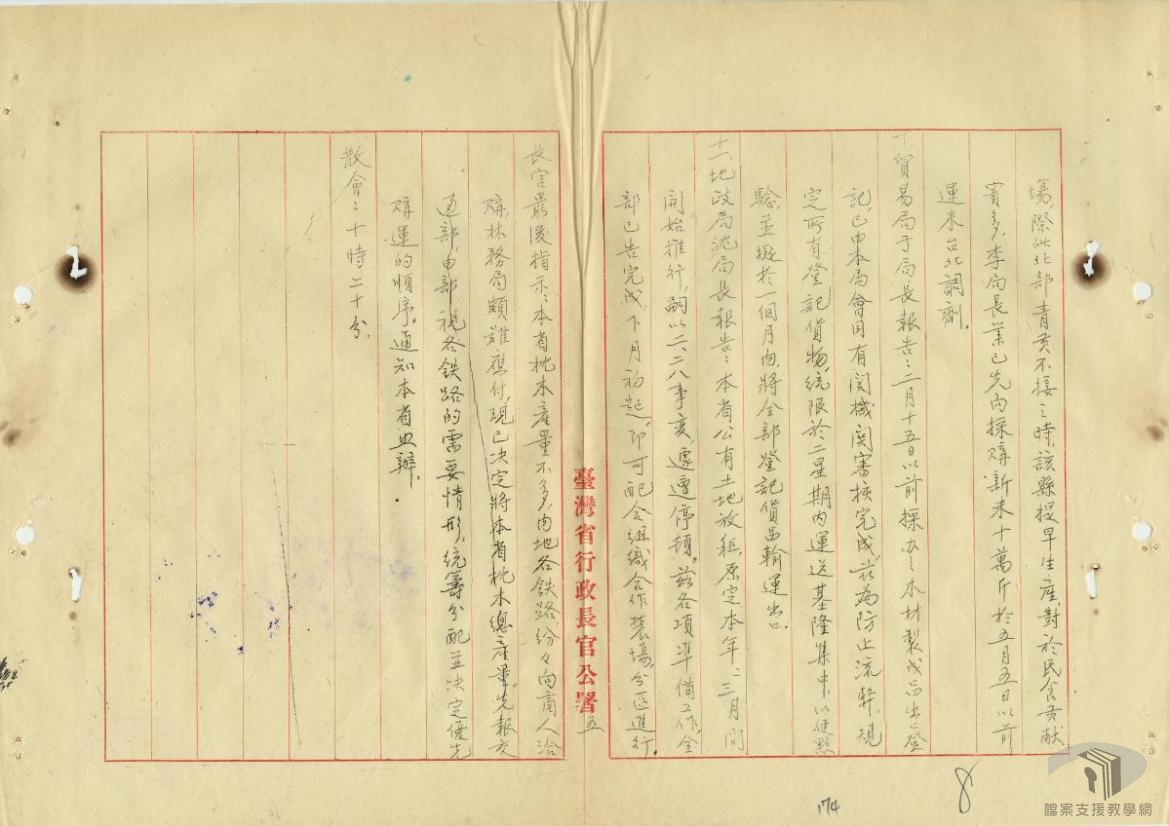 場，際此北部青黃不接之時，該縣提早生產，對於民食貢献
實多，李局長業已先向採購新米十萬斤於五月五日以前
運来台北調劑。
十、貿易局于局長報告：二月十五日以前採办之木材製成品出口登
記，已由本局會同有関機関審核完成，茲為防止流弊，規
定所有登記貨物，統限於二星期內運送基隆集中，以便點
驗，並擬於一個月內，將全部登記貨品輸運出口。
十一、地政局沈局長報告：本省公有土地放租，原定本年二、三月間
開始推行，嗣以二、二八事变，遽遭停頓。茲各項準備工作，全
部已告完成，下月初起，即可配合組織合作農場，分區進行。
臺灣省行政長官公署
五
長官最後指示：本省枕木產量不多，內地各鉄路紛々向商人洽
購，林務局頗難應付，現已决定將本省枕木總產量，先報交
通部，由部視各鉄路的需要情形，統籌分配並决定優先
購運的順序，通知本省照辦。
散會：十時二十分。
174
8
檔案支援教學網